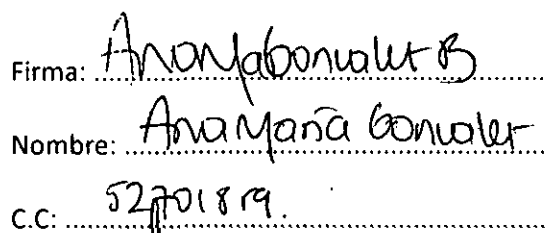 Firma: AnaMaGonzalez B
Nombre: Ana María Gonzalez
C.C: 52701819.